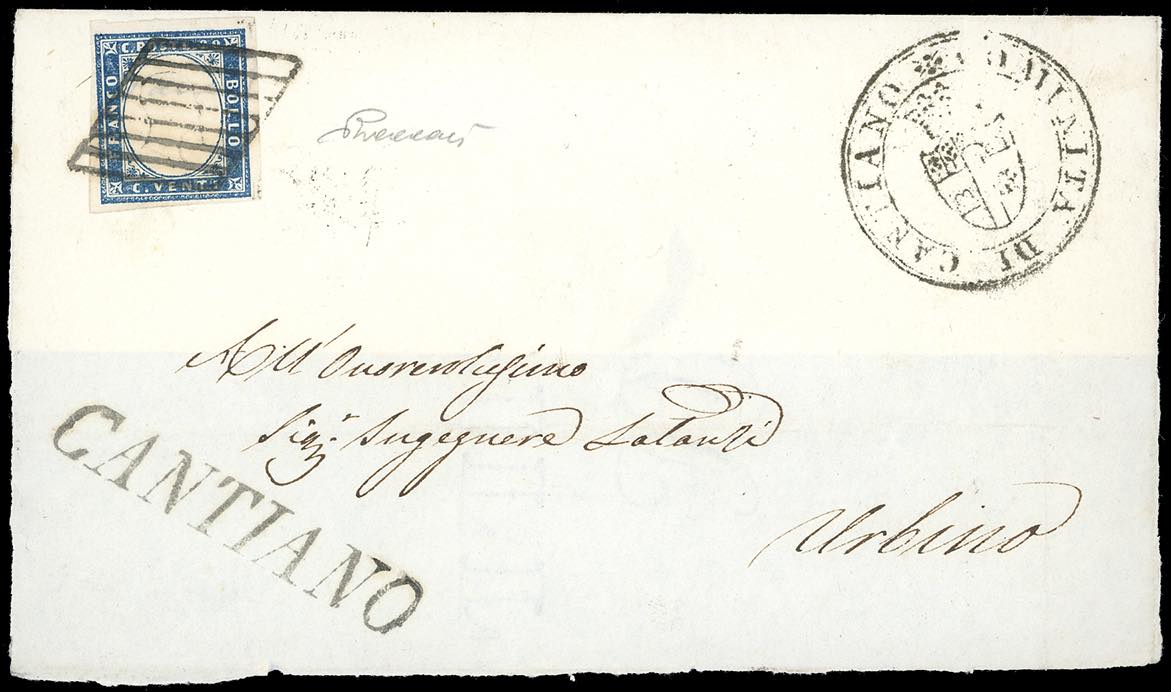 C. POSTALE 20
FRANCO
BOLLO
C. VENTI
COMUNITA DI CANTIANO
All' Onorevolissimo
Sigr. Ingegnere Latanzi
Urbino
CANTIANO